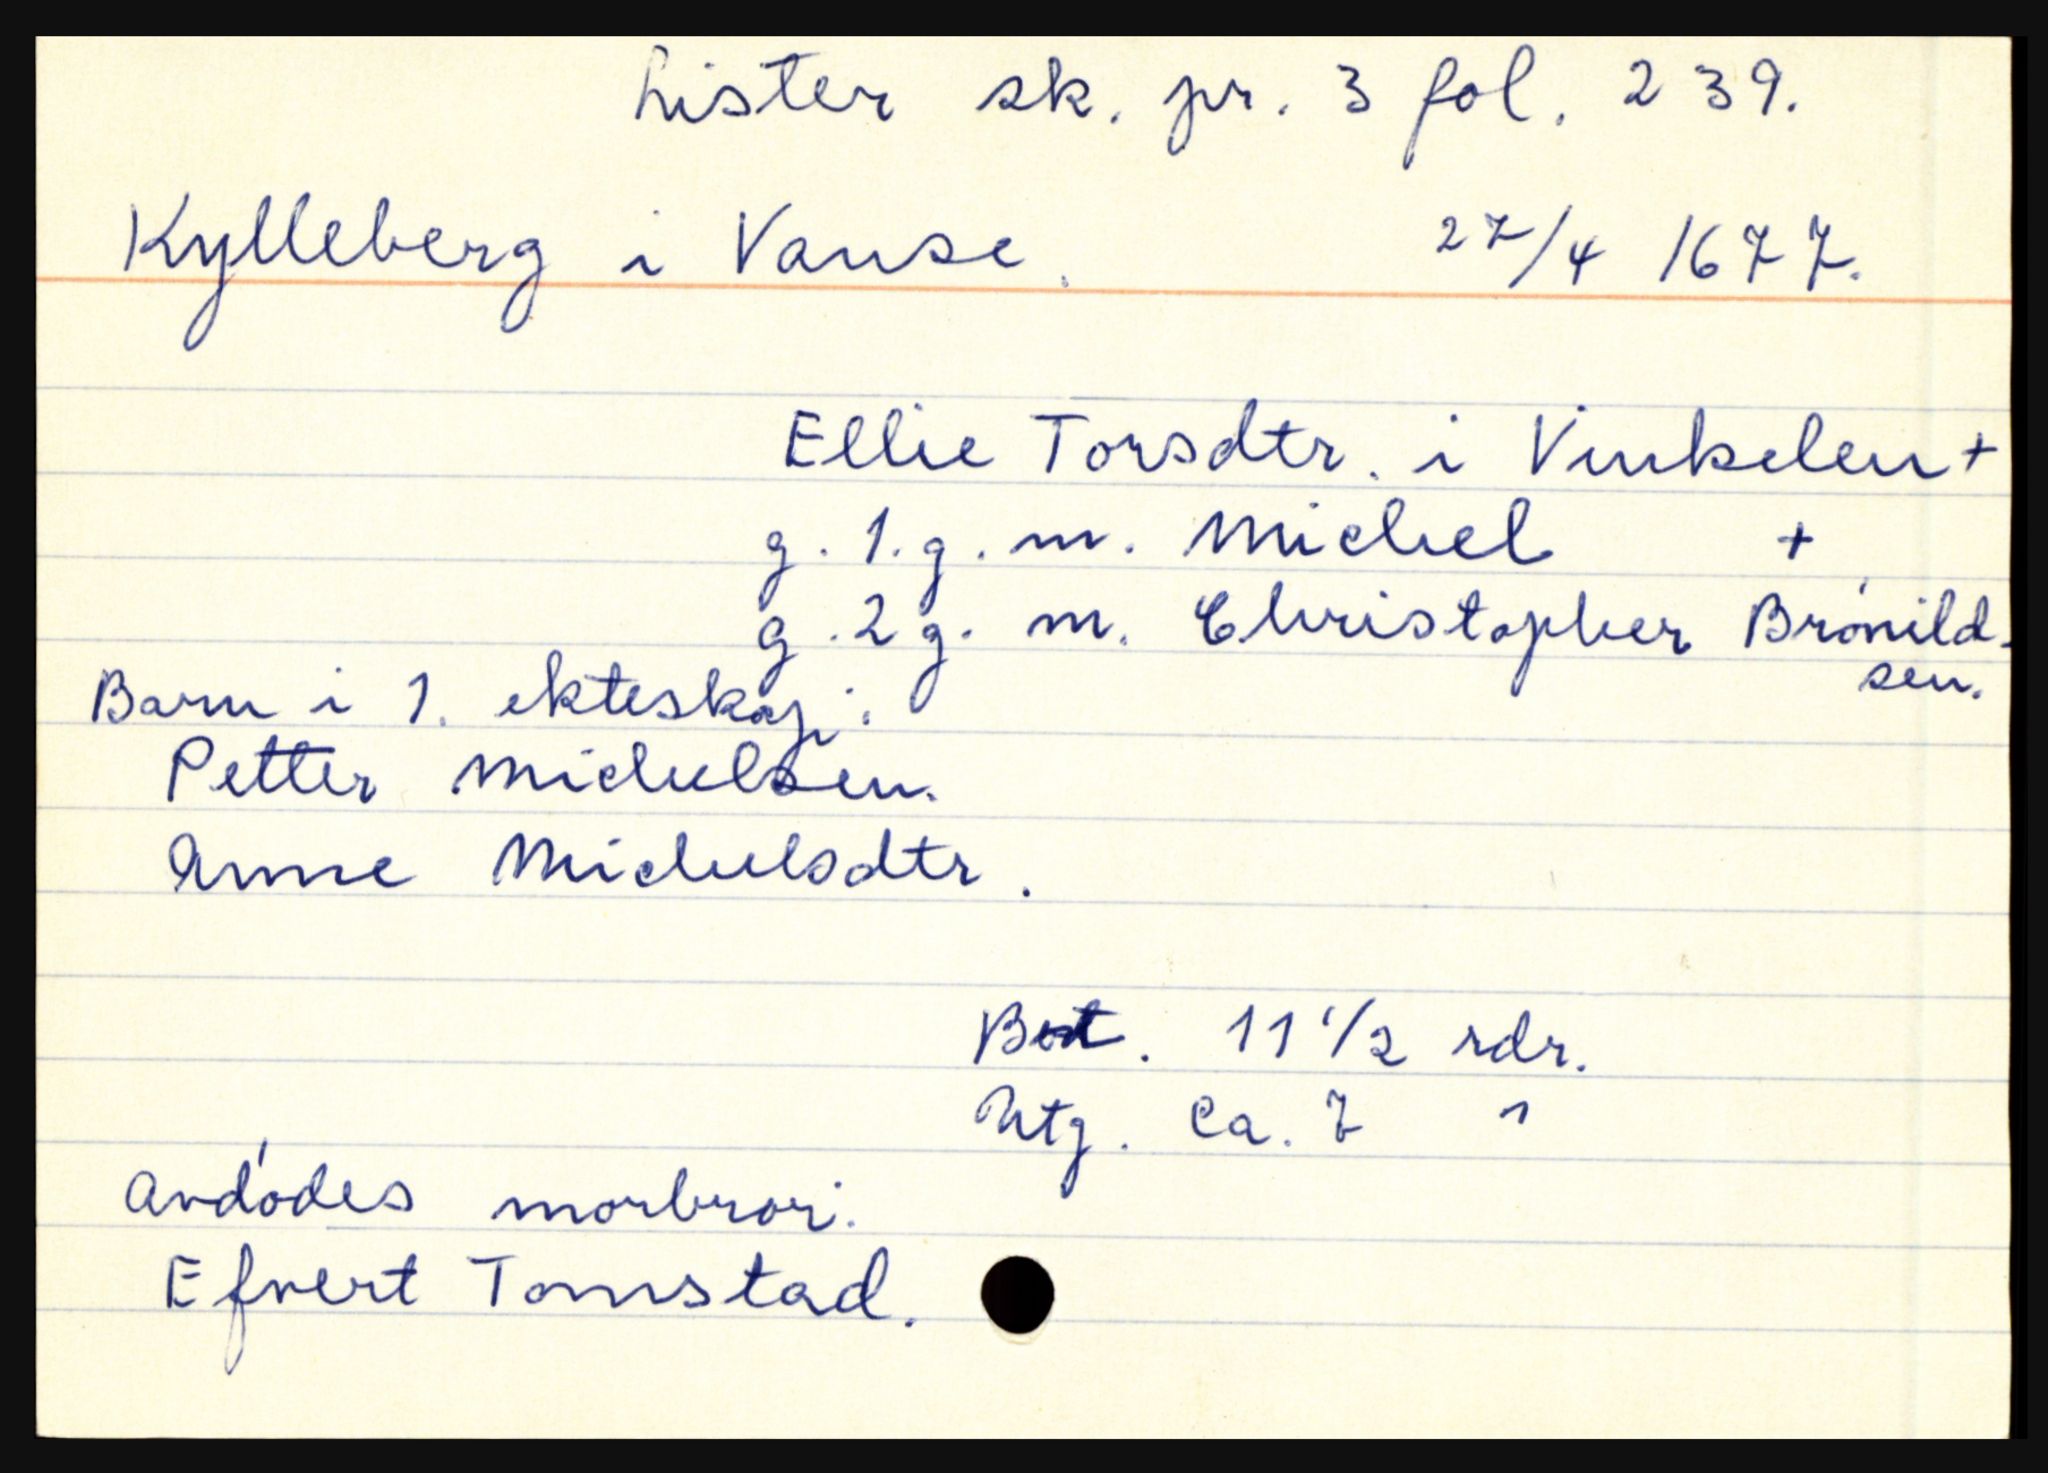 Lister sk. pr. 3 fol. 239.
Kylleberg i Vanse. 27/4 1677.
Ellie Torsdtr. i Vinkelen +
g. 1. g. m. Michel +
g. 2 g. m. Christopher Brónild-
sen.
Barn i 1. ekteskap:
Petter Michelsen.
Anne Michelsdtr.
Bort. 11 1/2 rdr.
Utg. ca. 7 "
Avdódes morbror:
Efvert Tomstad.